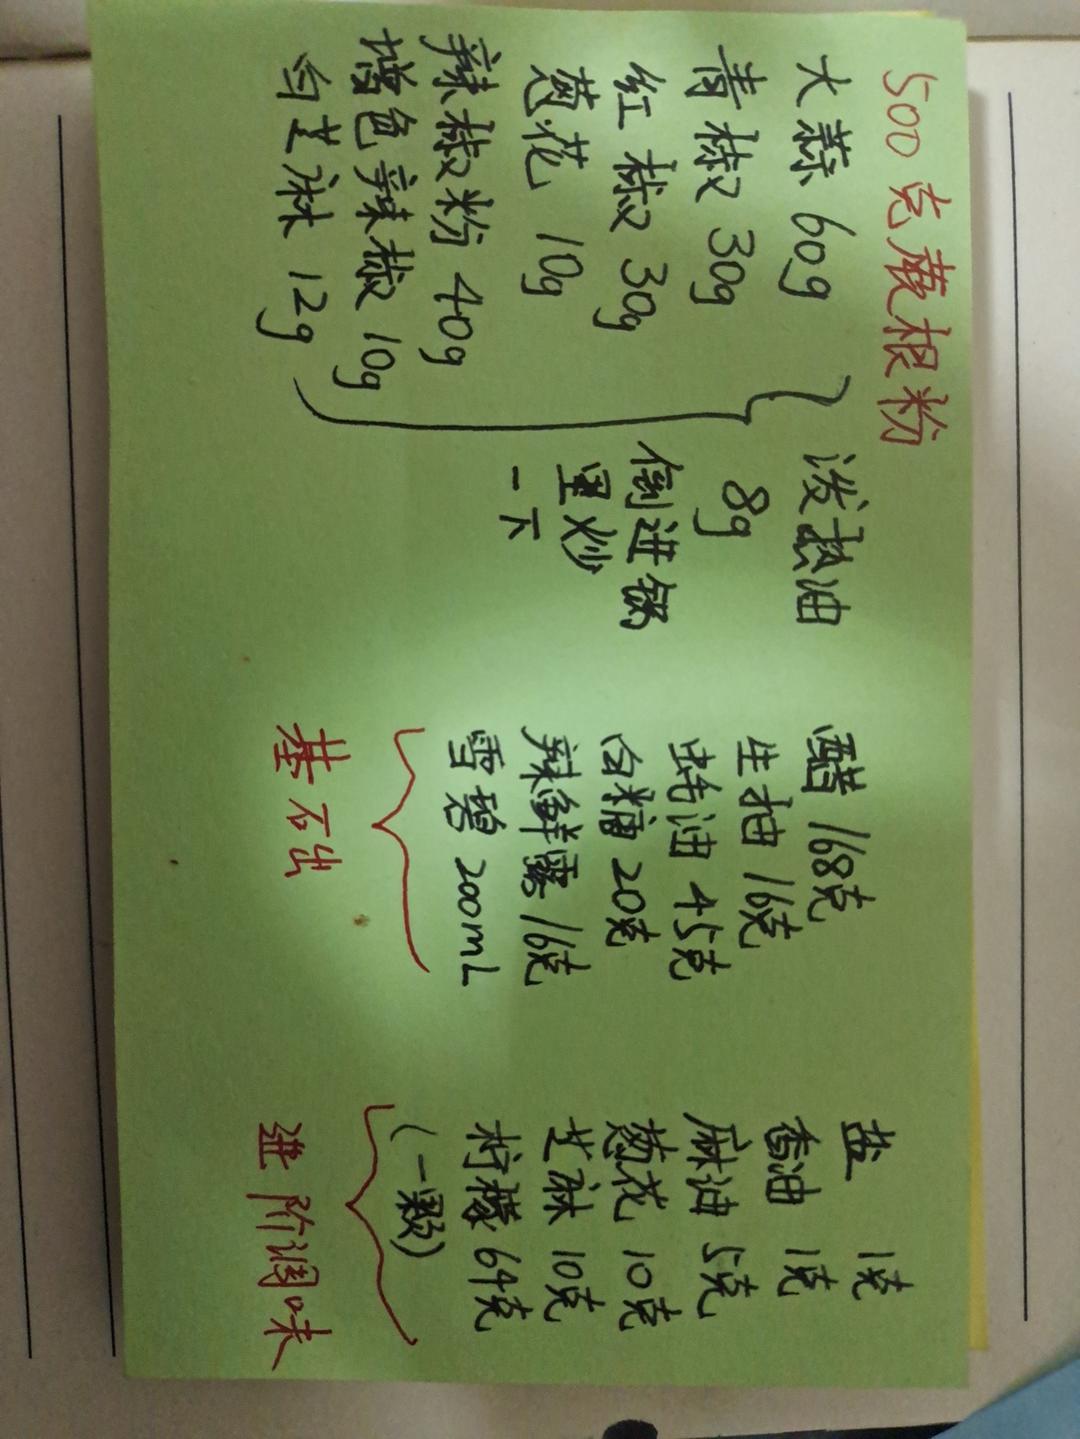 500克蕨根粉
大蒜 60g
青椒 30g
红椒 30g
葱花 10g
辣椒粉 40g
增色辣椒 10g
白芝麻 12g
泼热油
8g
倒进锅
里炒
一下
醋 168克
生抽 16克
蚝油 45克
白糖 20克
辣鲜露 16克
雪碧 200mL
基石出
盐 1克
香油 1克
麻油 5克
葱花 10克
芝麻 10克
柠檬 64克
(一颗)
进阶调味